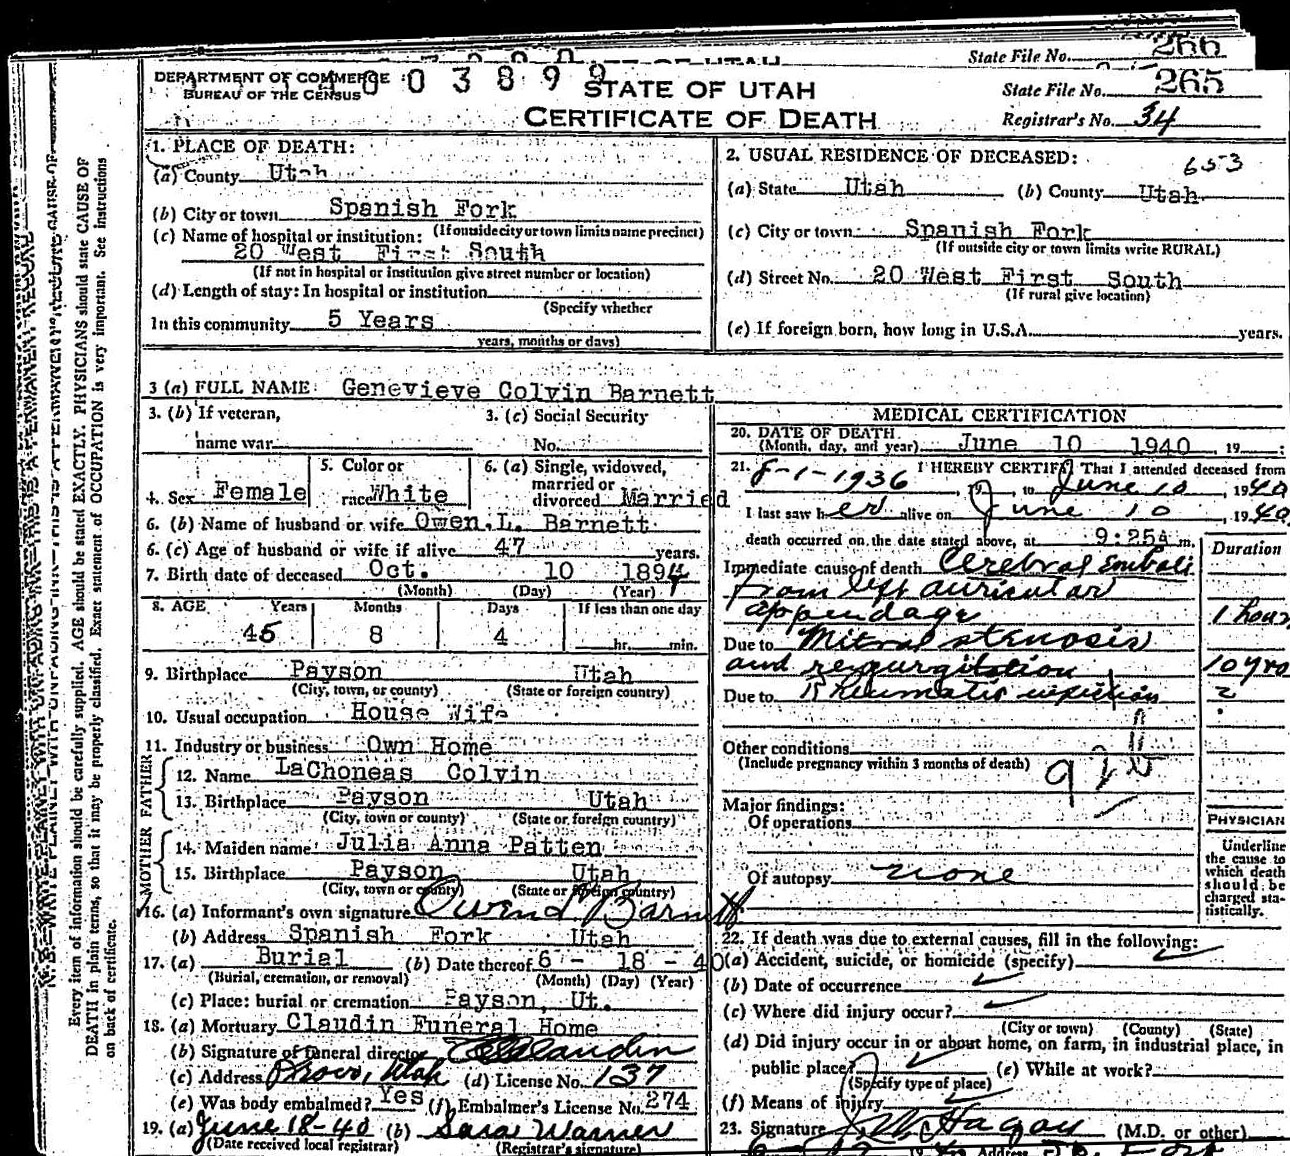 266
State File No.
DEPARTMENT OF COMMERCE
BUREAU OF THE CENSUS
0 0 3 8 9 9
STATE OF UTAH
CERTIFICATE OF DEATH
State File No. 265
Registrar's No. 34
1. PLACE OF DEATH:
(a) County Utah
(b) City or town Spanish Fork
(If outside city or town limits name precinct)
(c) Name of hospital or institution:
20 West First South
(If not in hospital or institution give street number or location)
(d) Length of stay: In hospital or institution
(Specify whether
In this community 5 Years
years, months or days)
2. USUAL RESIDENCE OF DECEASED:
653
(a) State Utah (b) County Utah
(c) City or town: Spanish Fork
(If outside city or town limits write RURAL)
(d) Street No. 20 West First South
(If rural give location)
(e) If foreign born, how long in U.S.A. years.
3 (a) FULL NAME: Genevieve Colvin Barnett
3. (b) If veteran,
name war
3. (c) Social Security
No.
4. Sex Female
5. Color or
race White
6. (a) Single, widowed,
married or
divorced Married
6. (b) Name of husband or wife Owen L. Barnett
6. (c) Age of husband or wife if alive 47 years.
7. Birth date of deceased Oct. 10 1894
(Month) (Day) (Year)
8. AGE Years Months Days If less than one day
45 8 4 hr. min.
9. Birthplace Payson Utah
(City, town, or county) (State or foreign country)
10. Usual occupation House Wife
11. Industry or business Own Home
FATHER
12. Name LaChoneas Colvin
13. Birthplace Payson Utah
(City, town or county) (State or foreign country)
MOTHER
14. Maiden name Julia Anna Patten
15. Birthplace Payson Utah
(City, town or county) (State or foreign country)
16. (a) Informant's own signature Owen L Barnett
(b) Address Spanish Fork Utah
17. (a) Burial (b) Date thereof 6 - 18 - 40
(Burial, cremation, or removal) (Month) (Day) (Year)
(c) Place: burial or cremation Payson, Ut.
18. (a) Mortuary Claudin Funeral Home
(b) Signature of funeral director
(c) Address Provo, Utah (d) License No. 137
(e) Was body embalmed? Yes (f) Embalmer's License No. 274
19. (a) June 18-40 (b) Sara Warner
(Date received local registrar) (Registrar's signature)
MEDICAL CERTIFICATION
20. DATE OF DEATH
(Month, day, and year) June 10 1940 19
21. I HEREBY CERTIFY That I attended deceased from
8-1-1936, 19, to June 10, 1940
I last saw her alive on June 10, 1940
death occurred on the date stated above, at 9:25A m.
Duration
Immediate cause of death Cerebral Emboli
from left auricular
appendage 1 hour
Due to Mitral stenosis
and regurgitation 10 yrs
Due to Rheumatic infection ?
Other conditions
(Include pregnancy within 3 months of death)
Major findings:
Of operations
Of autopsy none
PHYSICIAN
Underline
the cause to
which death
should be
charged sta-
tistically.
22. If death was due to external causes, fill in the following:
(a) Accident, suicide, or homicide (specify)
(b) Date of occurrence
(c) Where did injury occur?
(City or town) (County) (State)
(d) Did injury occur in or about home, on farm, in industrial place, in
public place? (e) While at work?
(Specify type of place)
(f) Means of injury
23. Signature J. W. Hagan (M.D. or other)
Address
Every item of information should be carefully supplied. AGE should be stated EXACTLY. PHYSICIANS should state CAUSE OF
DEATH in plain terms, so that it may be properly classified. Exact statement of OCCUPATION is very important. See instructions
on back of certificate.